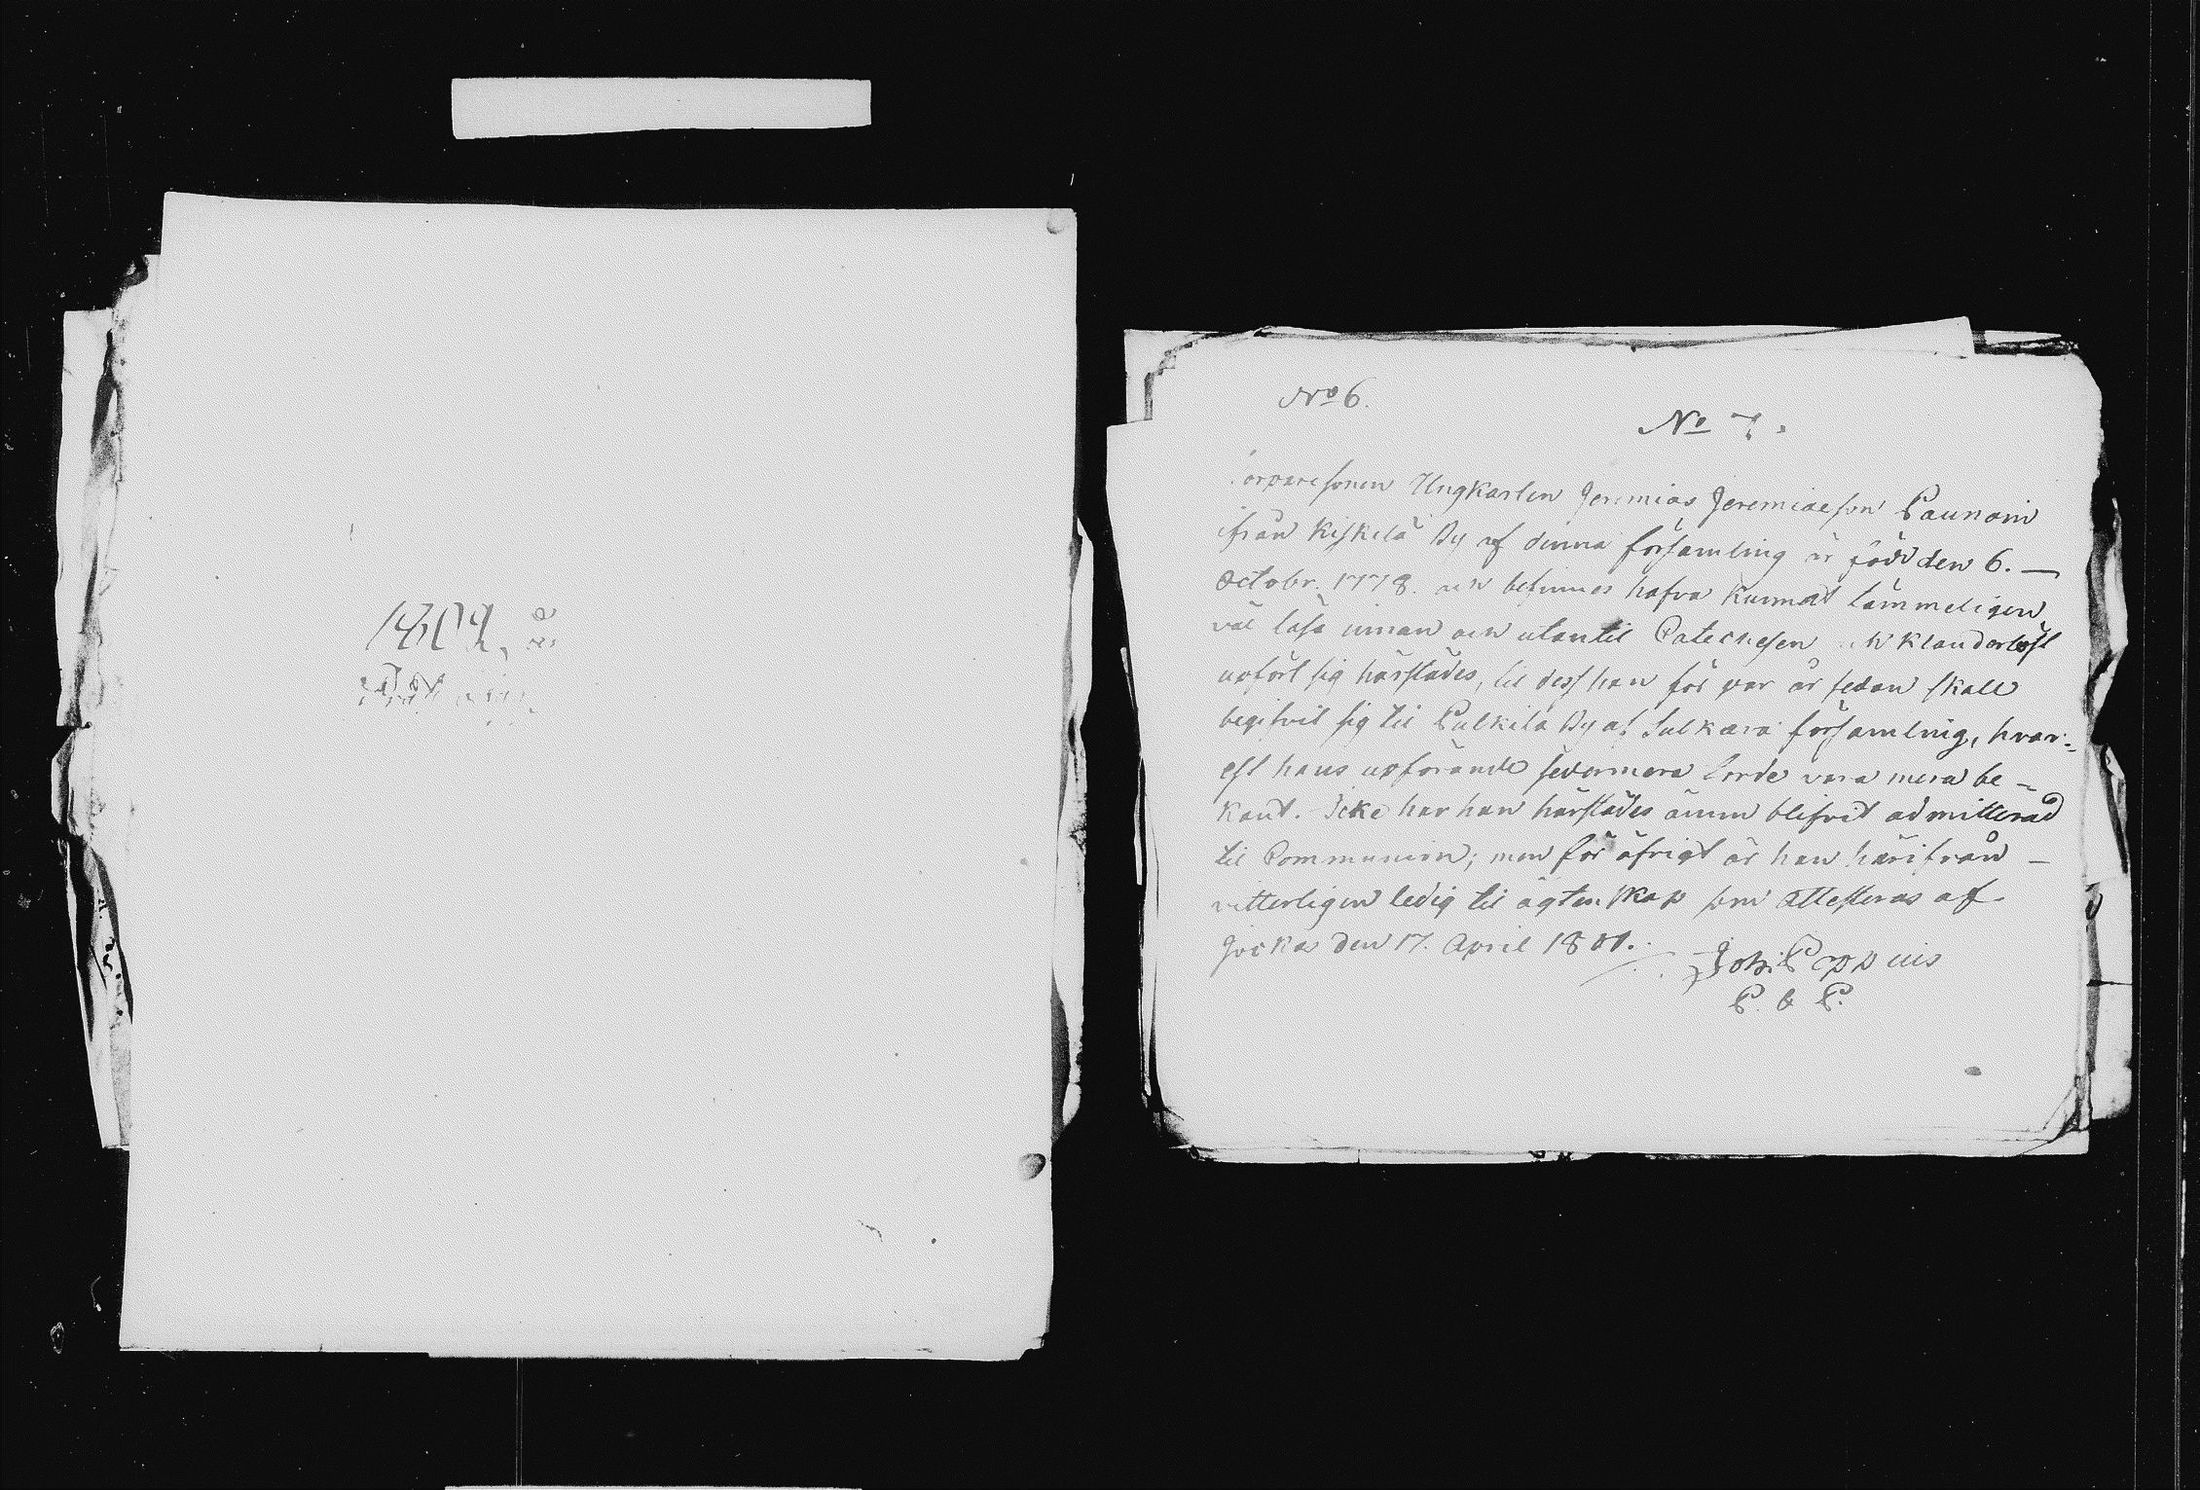 1809.
No 6.
No 7.
orparesonen Ungkarlen Jeremias Jeremiaeson Paunoin
ifrån Kiskilä By af denna församling är född den 6. —
Octobr. 1778. och befinnes hafva kunnat tämmeligen
väl läsa innan och utantil Catechesen och Klanderlöst
upfört sig härstädes, til dess han för par år sedan skall
begifvit sig til Pulkila By af församling, hvar=
est hans upförande sedermera torde vara mera be=
kant. Icke har han härstädes ännu blifvit admitterad
til Communion; men för öfrigt är han härifrån —
vitterligen ledig til ägtenskap som attesteras af
Jockas den 17. April 1801. Joh: Poppius
P. & P.